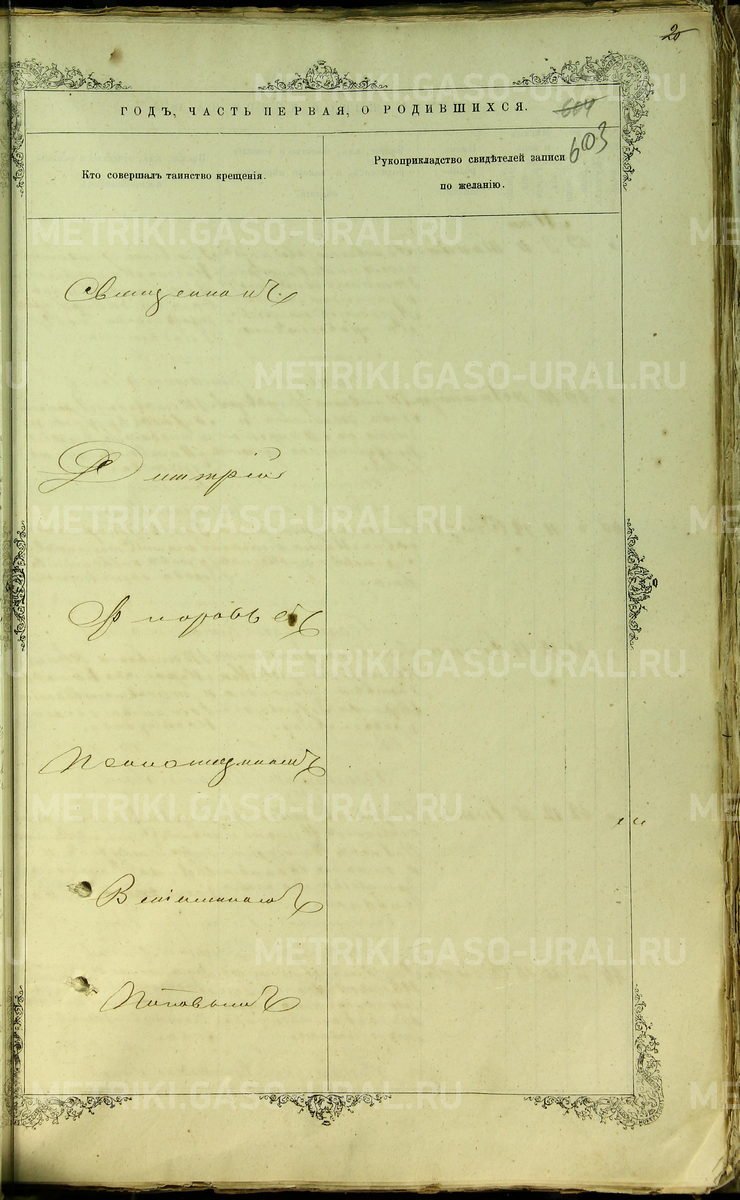 20
ГОДЪ, ЧАСТЬ ПЕРВАЯ, О РОДИВШИХСЯ.
604
603
Кто совершалъ таинство крещенія.
Рукоприкладство свидѣтелей записи
по желанію.
Священникъ
Димитрій
Флоровъ съ
Псаломщикомъ
Веніаминомъ
Поповымъ
METRIKI.GASO-URAL.RU